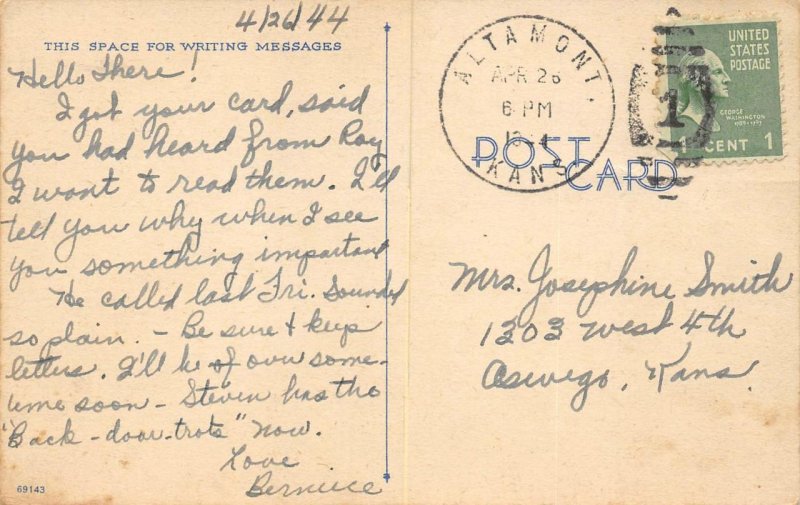 4/26/44
THIS SPACE FOR WRITING MESSAGES
Hello There!
I got your card, said
you had heard from Roy
I want to read them. I'll
tell you why when I see
you something important
He called last Fri. Sounded
so plain. - Be sure & keep
letters. I'll be of over some-
time soon - Steven has the
"Back-door-trots" Now.
Love
Bernice
69143
ALTAMONT,
APR 26
6 PM
KANS
POST
CARD
UNITED
STATES
POSTAGE
1
GEORGE
WASHINGTON
1789-1797
1 CENT 1
Mrs. Josephine Smith
1203 West 4th
Oswego, Kans.